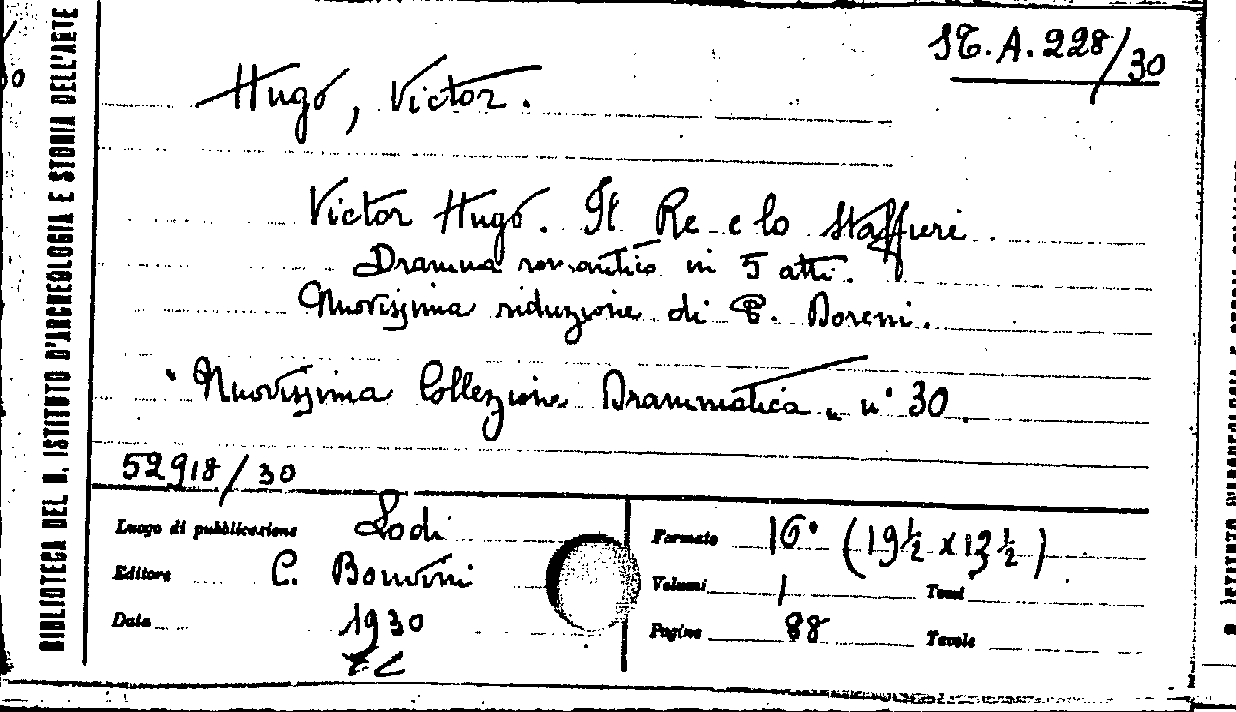 BIBLIOTECA DEL R. ISTITUTO D'ARCHEOLOGIA E STORIA DELL'ARTE
ST. A. 228/30
Hugo, Victor.
Victor Hugo. Il Re e lo Staffieri.
Dramma romantico in 5 atti.
Nuovissima riduzione di E. Boreni.
"Nuovissima Collezione Drammatica" n° 30.
52918/30
Luogo di pubblicazione Lodi
Editore C. Bonvini
Data 1930
Formato 16° (19½ x 13½)
Volumi 1 Tomi
Pagine 88 Tavole